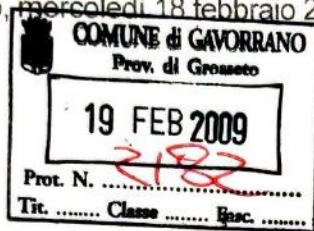 , mercoledì 18 febbraio 2
COMUNE di GAVORRANO
Prov. di Grosseto
19 FEB 2009
Prot. N. .................. 2182
Tit. ........ Classe ........ Fasc. ........